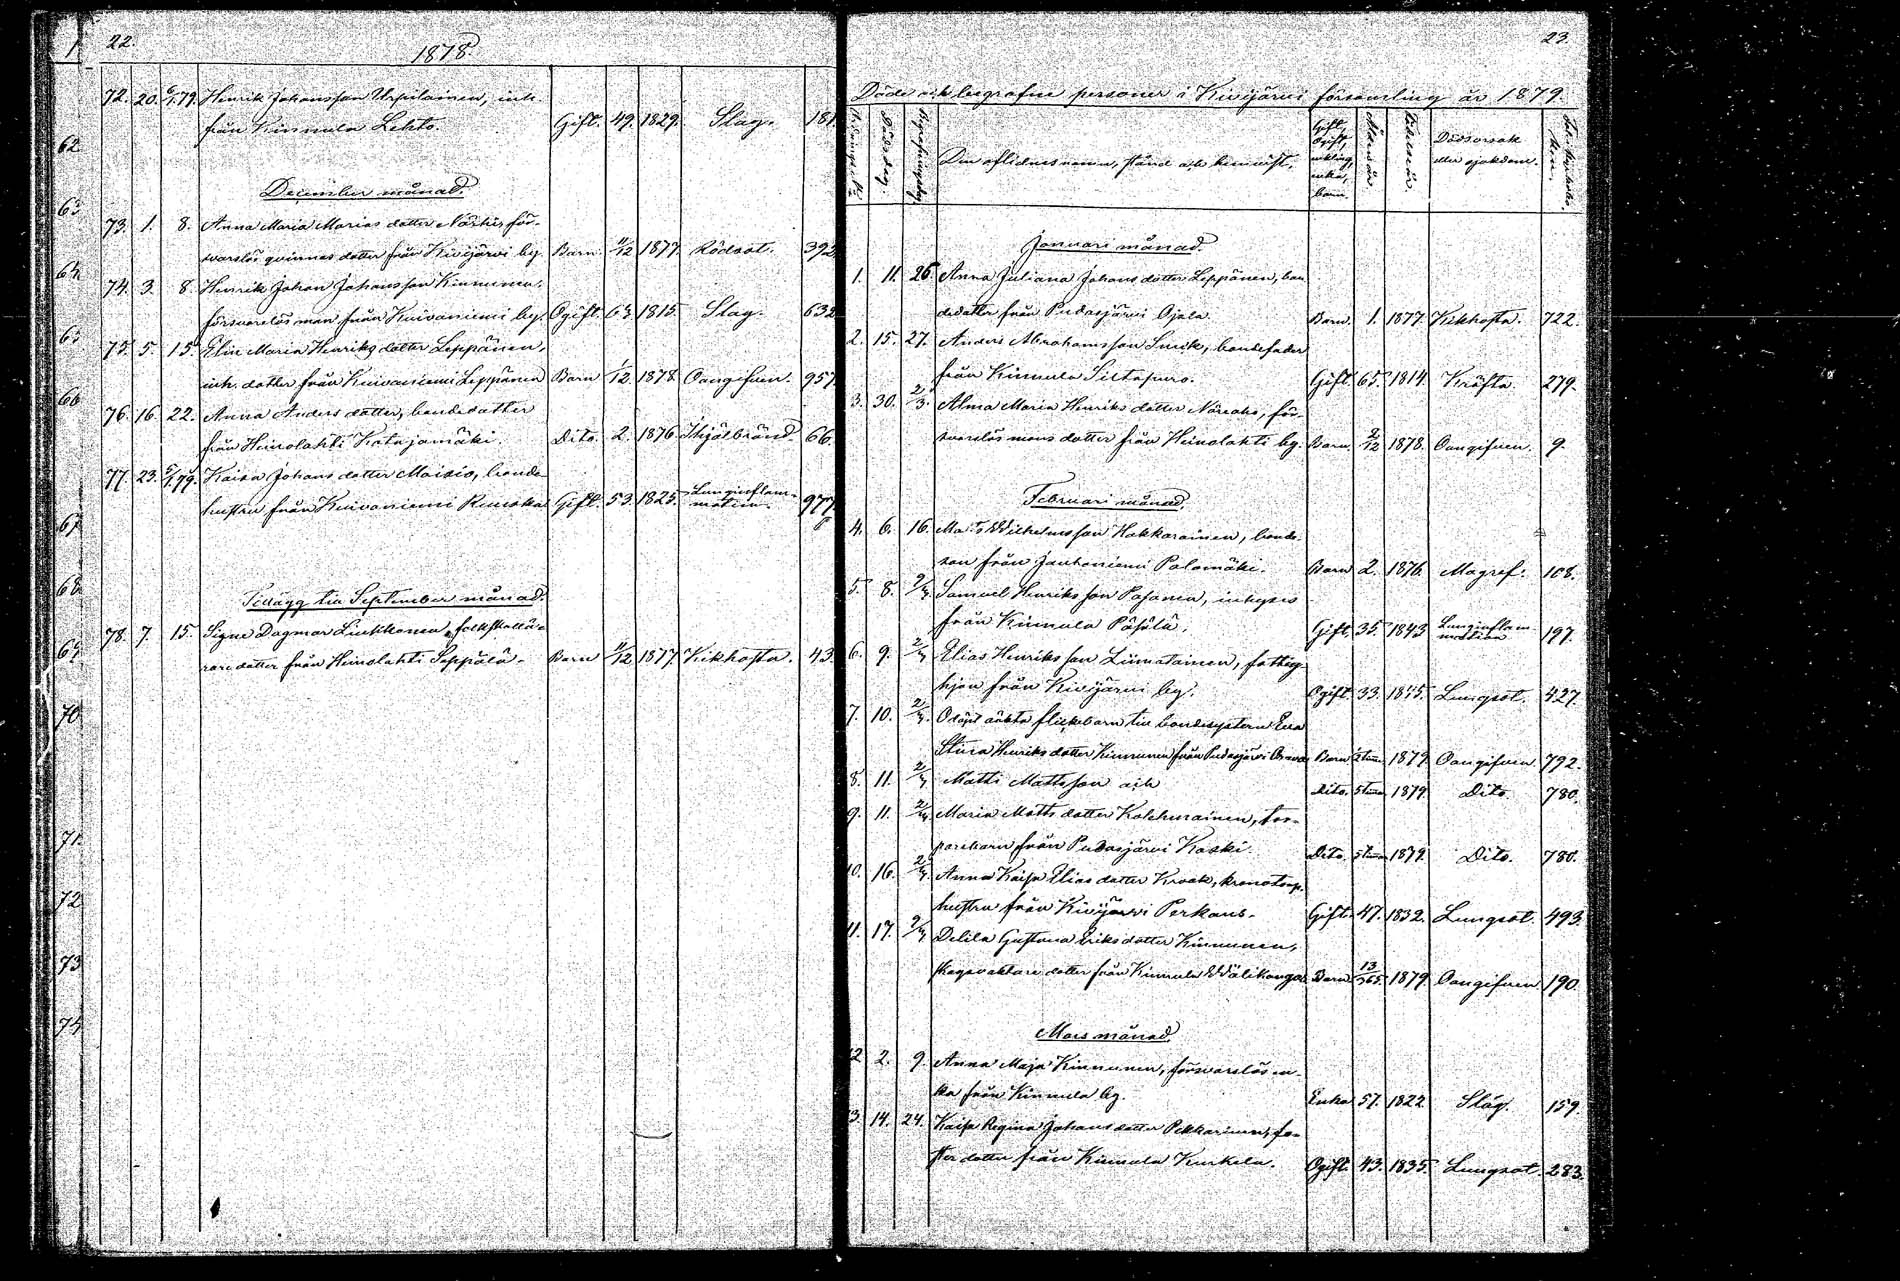 1
62
63
64
65
66
67
68
69
70
71.
72
73
74
22.
1878.
72. 20. 6/1.79. Henrik Johansson Urpilainen, inh.
från Kinnula Lehto. Gift. 49. 1829. Slag. 181.
December månad.
73. 1. 8. Anna Maria Marias dotter Närhi, för-
svarslös qvinnas dotter från Kivijärvi by. Barn. 11/12 1877. Rödsot. 392.
74. 3. 8. Henrik Johan Johansson Kinnunen,
försvarslös man från Kuivaniemi by. Ogift. 63. 1815. Slag. 632.
75. 5. 15. Elin Maria Henriks dotter Leppänen,
inh. dotter från Kuivaniemi Leppänen Barn 1/12. 1878. Oangifven. 957.
76. 16. 22. Anna Anders dotter, bondedotter
från Heinolahti Katajamäki. Dito. 2. 1876. Ihjälbränd 66.
77. 23. 5/1.79. Kaisa Johans dotter Maisio, bonde-
hustru från Kuivaniemi Runska Gift. 53. 1825. Lunginflam-
mation. 977.
Tillägg till September månad.
78. 7. 15. Signe Dagmar Linkkonen, folkskollä-
rare dotter från Heinolahti Seppälä. Barn 11/12 1877. Kikhosta. 43.
23.
Döde och begrafne personer i Kivijärvi församling år 1879.
Dödsdag. Begrafningsdag Den aflidnes namn, stånd och hemvist. Gift,
Ogift,
enkling,
enka,
barn. Ålder år Födelseår. Dödsorsak
eller sjukdom.
Januari månad.
1. 11. 26. Anna Juliana Johans dotter Leppänen, bon
dedotter från Pudasjärvi Ojala. Barn. 1. 1877. Kikhosta. 722.
2. 15. 27. Anders Abrahamsson Smik, bondefader
från Kinnula Siltapuro. Gift. 65. 1814. Kräfta. 279.
3. 30. 2/3. Alma Maria Henriks dotter, för-
svarslös mans dotter från Heinolahti by. Barn. 2/12 1878. Oangifven. 9.
Februari månad.
4. 6. 16. Matts Wilhelmsson Hakkarainen, bonde-
son från Jantoniemi Palomäki. Barn 2. 1876. Magref. 108.
5. 8. 2/3. Samuel Henriksson Pasanen, inhyses
från Kinnula. Gift. 35. 1843 Lunginflam-
mation 197.
6. 9. 2/3. Elias Henriksson Liimatainen, fattig-
hjon från Kivijärvi by. Ogift. 33. 1845. Lungsot. 427.
7. 10. 2/3. Odöpt äkta flickebarn till bondesystern Eva
Stina Henriks dotter Kinnunen från Pudasjärvi Barn 1879. Oangifven. 792.
8. 11. 2/3 Matti Mattsson och Dito. 1879. Dito. 780.
9. 11. 2/3 Maria Matts dotter Kolehmainen, tor-
parebarn från Pudasjärvi Koski. Dito. 1879. Dito. 780.
10. 16. 2/3. Anna Kaisa Elias dotter Kraak, kronotorp.
hustru från Kivijärvi Perkaus. Gift. 47. 1832. Lungsot. 493.
11. 17. 2/3 Delila Gustava Eriksdotter Kinnunen,
skogvaktare dotter från Kinnula Wälikangas Barn. 13/365. 1879. Oangifven. 190.
Mars månad.
12 2. 9. Anna Maja Kinnunen, försvarslös en-
ka från Kinnula by. Enka 57. 1822 Slag. 159.
13. 14. 24. Kaisa Regina Johans dotter Pekkarinen, fo-
ster dotter från Kinnula Kurkela. Ogift 43. 1835. Lungsot. 283.